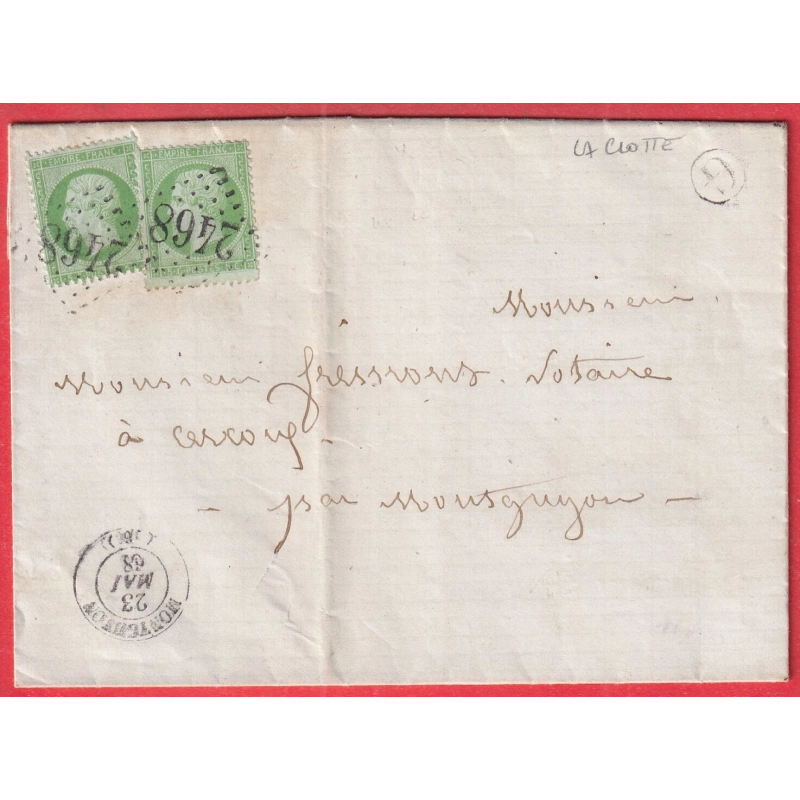 LA CLOTTE
EMPIRE FRANC
EMPIRE FRANC
2468
2468
Monsieur
Monsieur
Notaire
à Cercoux
par Montguyon
MONTGUYON
23
MAI
68
(16)